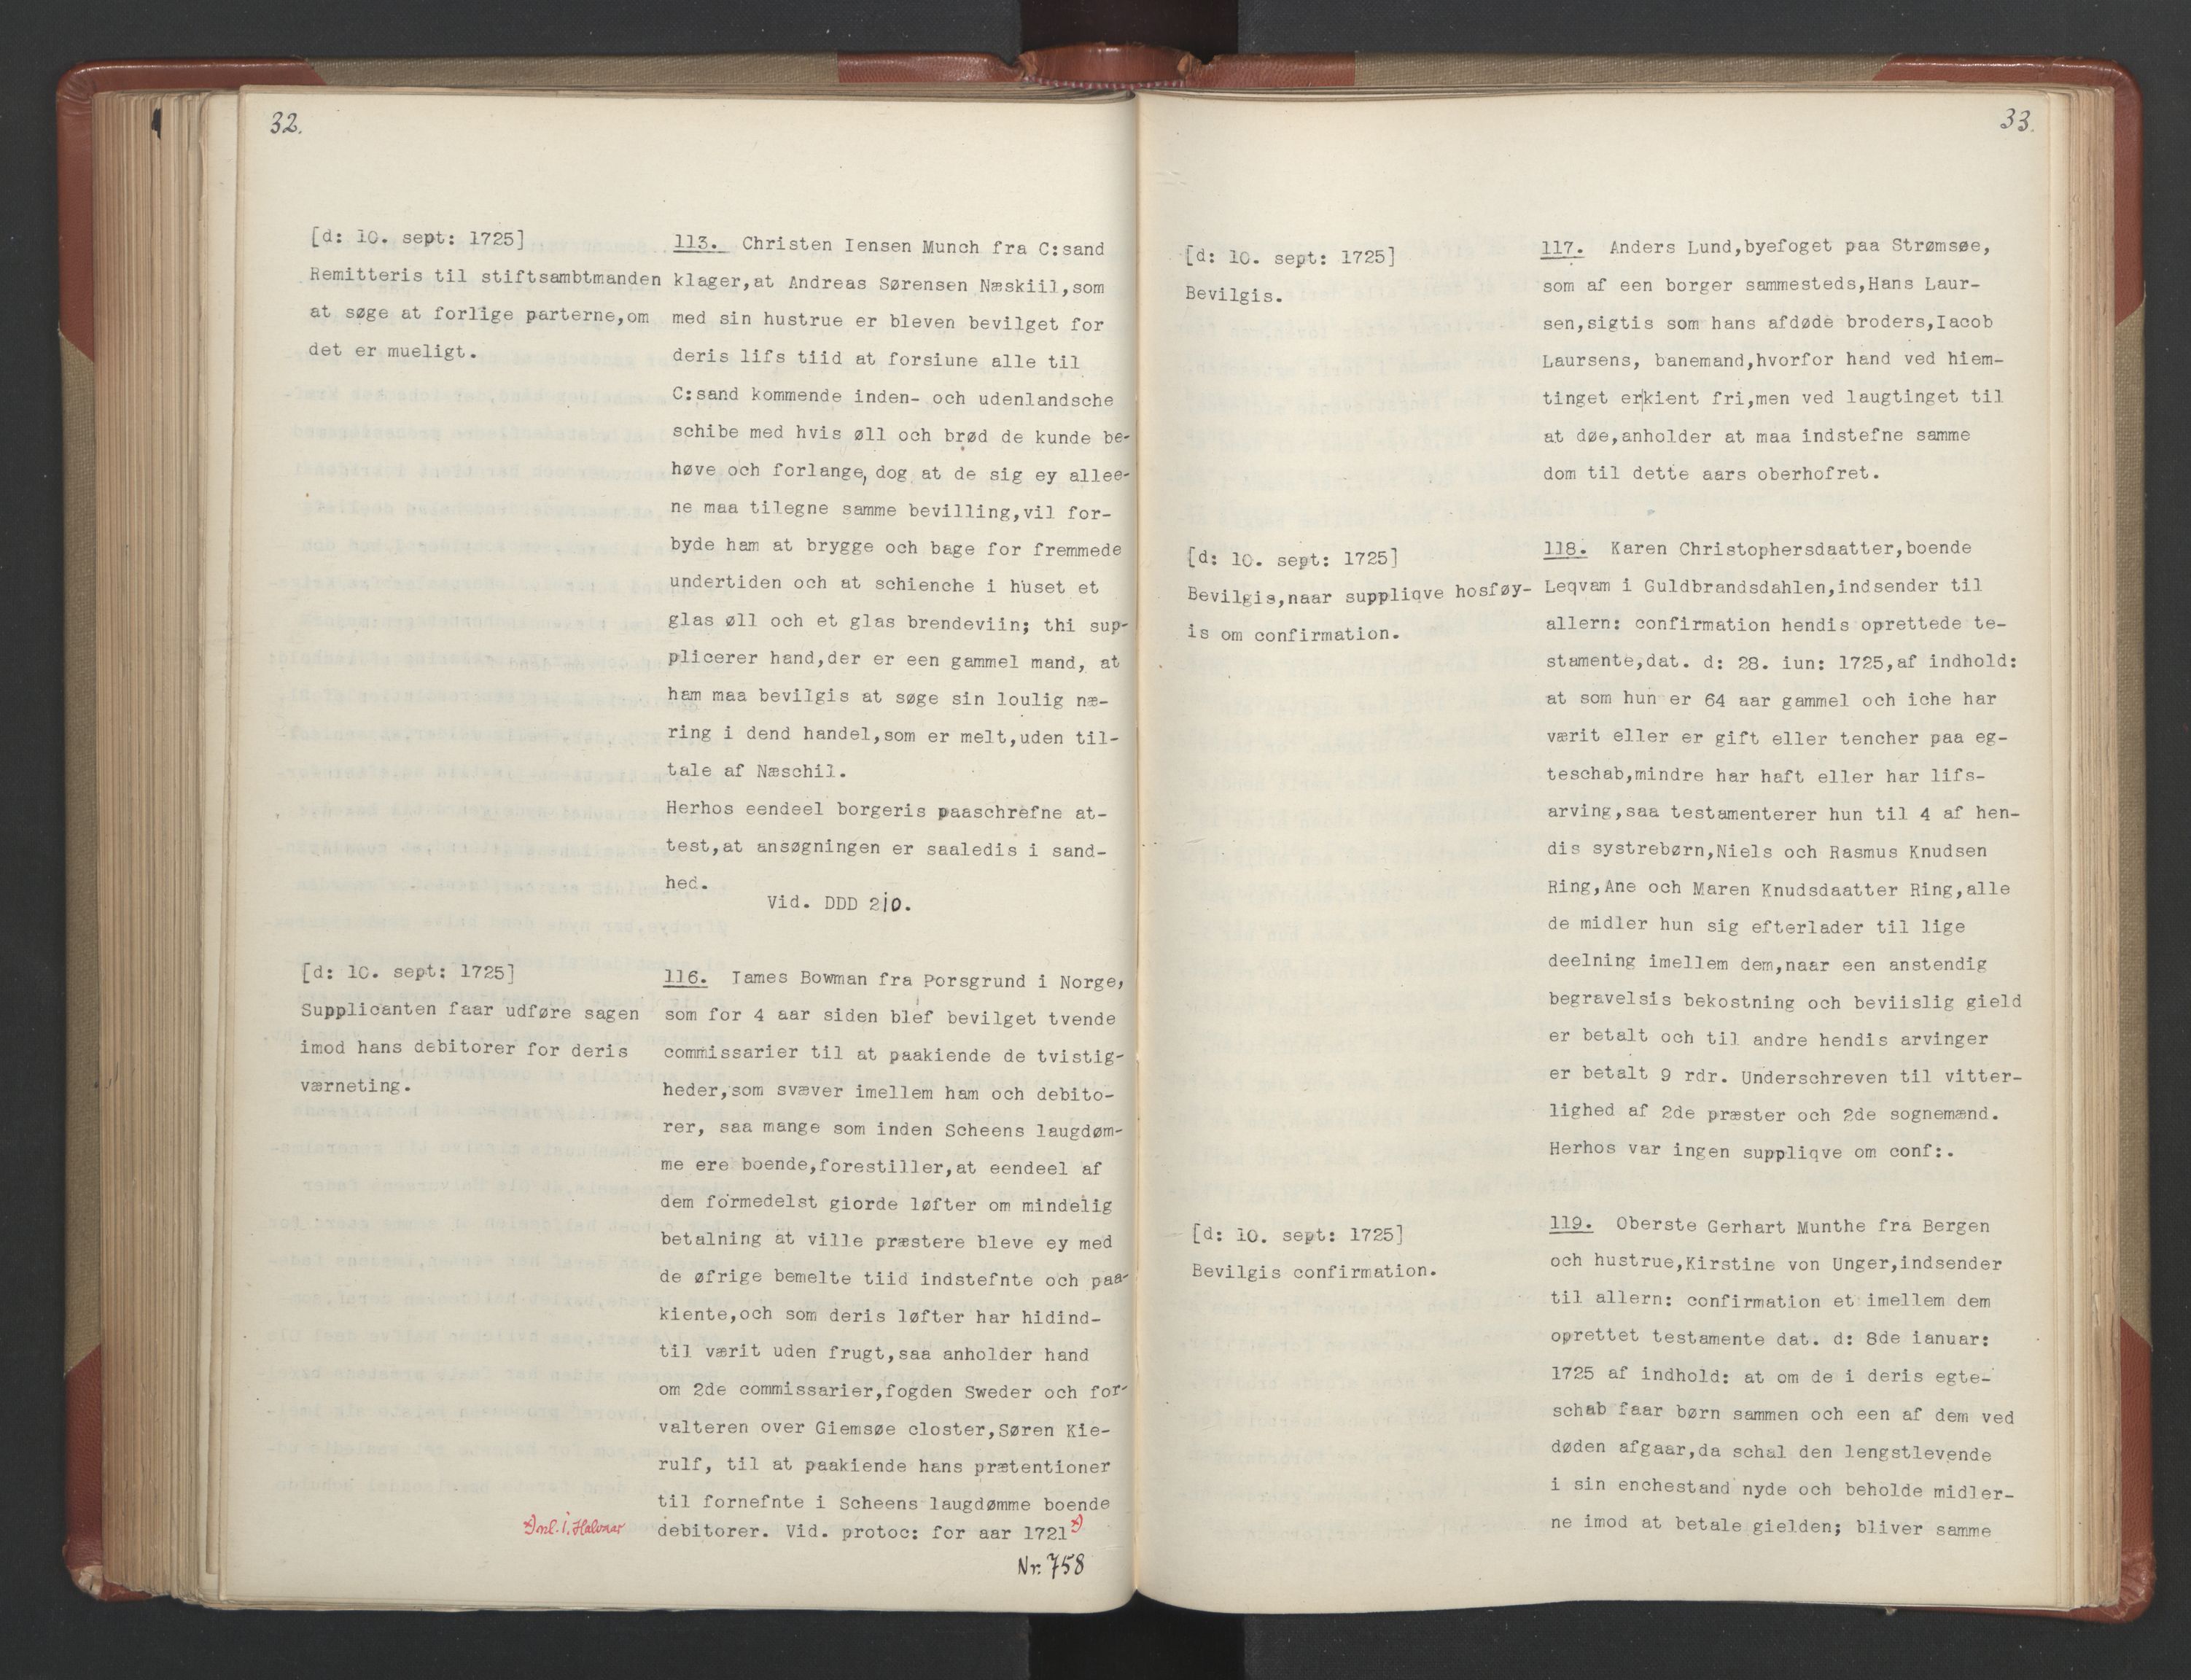 32.
[d: 10. sept: 1725]
Remitteris til stiftsambtmanden
at søge at forlige parterne,om
det er mueligt.
113. Christen Iensen Munch fra C:sand
klager,at Andreas Sørensen Næskiil,som
med sin hustrue er bleven bevilget for
deris lifs tiid at forsiune alle til
C:sand kommende inden- och udenlandsche
schibe med hvis øll och brød de kunde be-
høve och forlange, dog at de sig ey allee-
ne maa tilegne samme bevilling,vil for-
byde ham at brygge och bage for fremmede
undertiden och at schienche i huset et
glas øll och et glas brendeviin; thi sup-
plicerer hand,der er een gammel mand, at
ham maa bevilgis at søge sin loulig næ-
ring i dend handel,som er melt,uden til-
tale af Næschil.
Herhos eendeel borgeris paaschrefne at-
test,at ansøgningen er saaledis i sand-
hed.
Vid. DDD 210.
[d: 10. sept: 1725]
Supplicanten faar udføre sagen
imod hans debitorer for deris
værneting.
116. Iames Bowman fra Porsgrund i Norge,
som for 4 aar siden blef bevilget tvende
commissarier til at paakiende de tvistig-
heder,som svæver imellem ham och debito-
rer, saa mange som inden Scheens laugdøm-
me ere boende,forestiller,at eendeel af
dem formedelst giorde løfter om mindelig
betalning at ville præstere bleve ey med
de øfrige bemelte tiid indstefnte och paa-
kiente,och som deris løfter har hidind-
til værit uden frugt,saa anholder hand
om 2de commissarier,fogden Sweder och for-
valteren over Giemsøe closter,Søren Kie-
rulf, til at paakiende hans prætentioner
til fornefnte i Scheens laugdømme boende
debitorer. Vid. protoc: for aar 1721 x)
x) nl. i. Halvaar
Nr. 758
33.
[d: 10. sept: 1725]
Bevilgis.
117. Anders Lund,byefoget paa Strømsøe,
som af een borger sammesteds,Hans Laur-
sen,sigtis som hans afdøde broders,Iacob
Laursens, banemand,hvorfor hand ved hiem-
tinget er|kient fri,men ved laugtinget til
at døe,anholder at maa indstefne samme
dom til dette aars oberhofret.
[d: 10. sept: 1725]
Bevilgis,naar suppliqve hosføy-
is om confirmation.
118. Karen Christophersdaatter,boende
Leqvam i Guldbrandsdahlen,indsender til
allern: confirmation hendis oprettede te-
stamente,dat. d: 28. iun: 1725,af indhold:
at som hun er 64 aar gammel och iche har
værit eller er gift eller tencher paa eg-
teschab,mindre har haft eller har lifs-
arving,saa testamenterer hun til 4 af hen-
dis systrebørn,Niels och Rasmus Knudsen
Ring,Ane och Maren Knudsdaatter Ring,alle
de midler hun sig efterlader til lige
deelning imellem dem,naar een anstendig
begravelsis bekostning och beviislig gield
er betalt och til andre hendis arvinger
er betalt 9 rdr. Underschreven til vitter-
lighed af 2de præster och 2de sognemænd.
Herhos var ingen suppliqve om conf:.
[d: 10. sept: 1725]
Bevilgis confirmation.
119. Oberste Gerhart Munthe fra Bergen
och hustrue,Kirstine von Unger,indsender
til allern: confirmation et imellem dem
oprettet testamente dat. d: 8de ianuar:
1725 af indhold: at om de i deris egte-
schab faar børn sammen och een af dem ved
døden afgaar,da schal den lengstlevende
i sin enchestand nyde och beholde midler-
ne imod at betale gielden; bliver samme